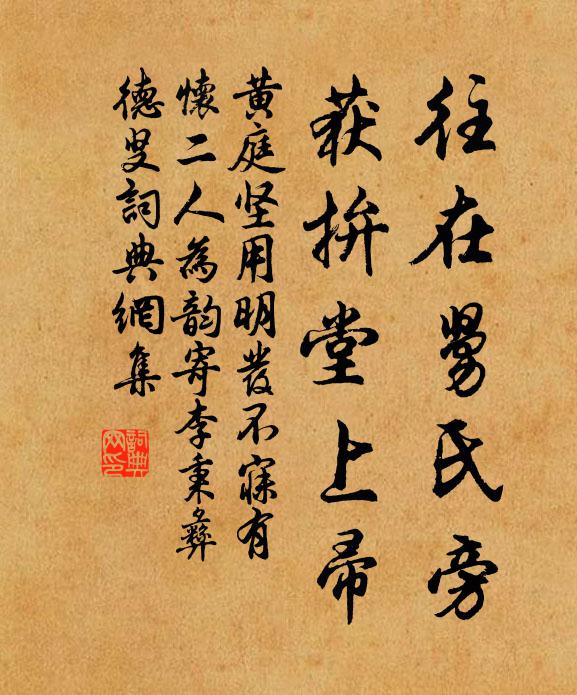 往在舅氏旁
获拚堂上帚
黄庭坚用明發不寐有
懷二人為韵寄李秉彝
德叟詞典網集
詞典网印